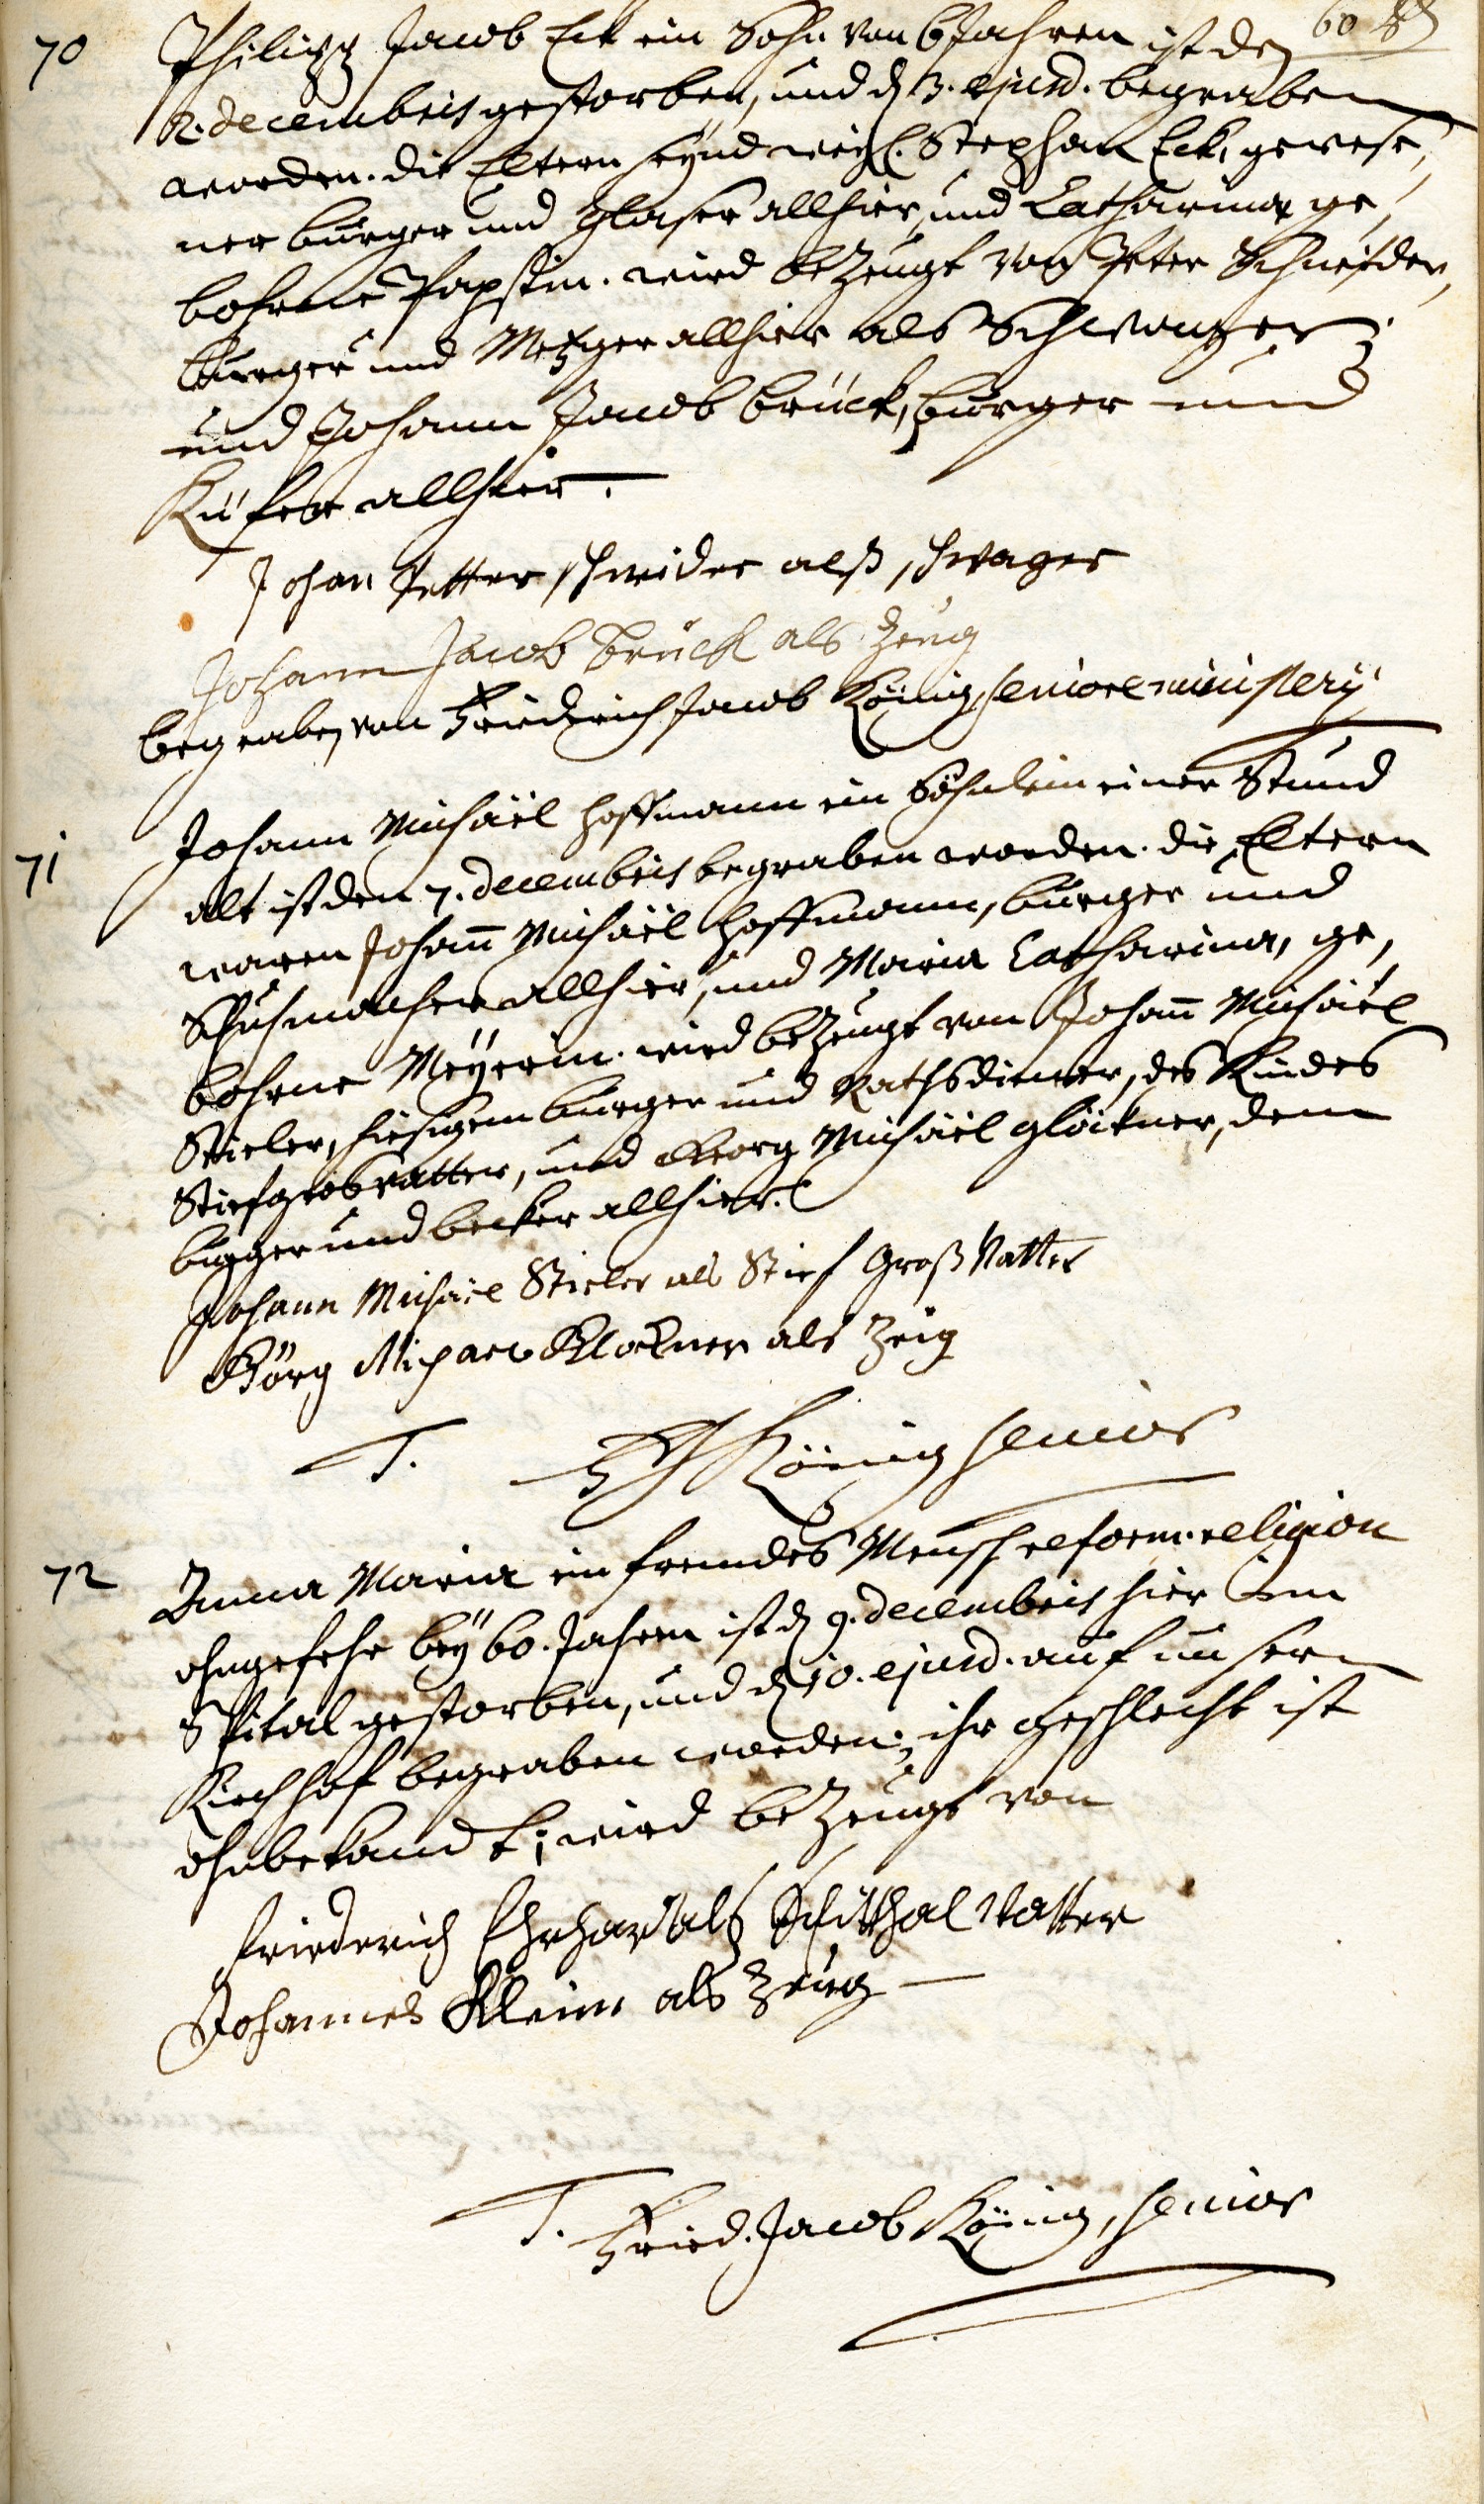 60
70 Philipp Jacob Eck ein Sohn von 6 Jahren ist den
2. decembris gestorben, und d. 3. ejusd. begraben
worden. die Eltern seynd weyl. Stephan Eck, gewese,
ner burger und Glaser allhier, und Catharina ge,
bohrne Papstin. wird bezeugt von Peter Schneider,
burger und Metzger allhier als Schwager;
und Johann Jacob brück, burger und
Küfer allhier.
Johan Petter schneider alß schwager
Johann Jacob brück als Zeug
begraben von Friedrich Jacob König, seniore ministerij
71 Johann Michaël Hoffmann ein Söhnlein einer Stund
alt ist den 7. decembris begraben worden. die Eltern
waren Johañ Michaël Hoffmann, burger und
Schuhmacher allhier, und Maria Catharina, ge,
bohrne Meyerin. wird bezeugt von Johañ Michaël
Stieler, hiesigem burger und Rathsdiener, des Kindes
Stiefgrosvatter, und Georg Michaël glöckner, dem
burger und becker allhier.
Johann Michael Stieler als Stief Großvatter
Görg Michael Klockner als Zeig
T. FJ König senior
72 Anna Maria ein fremdes Mensch reform. religion
ohngefehr bey 60. Jahren ist d. 9. decembris hier im
Spital gestorben, und d. 10. ejusd. auf unserm
Kirchhof begraben worden; ihr geschlecht ist
ohnbekandt; wird bezeugt von
Friederich Ehrhart als Spitthal Vatter
Johannes Klein als Zeug
T. Fried. Jacob König, senior